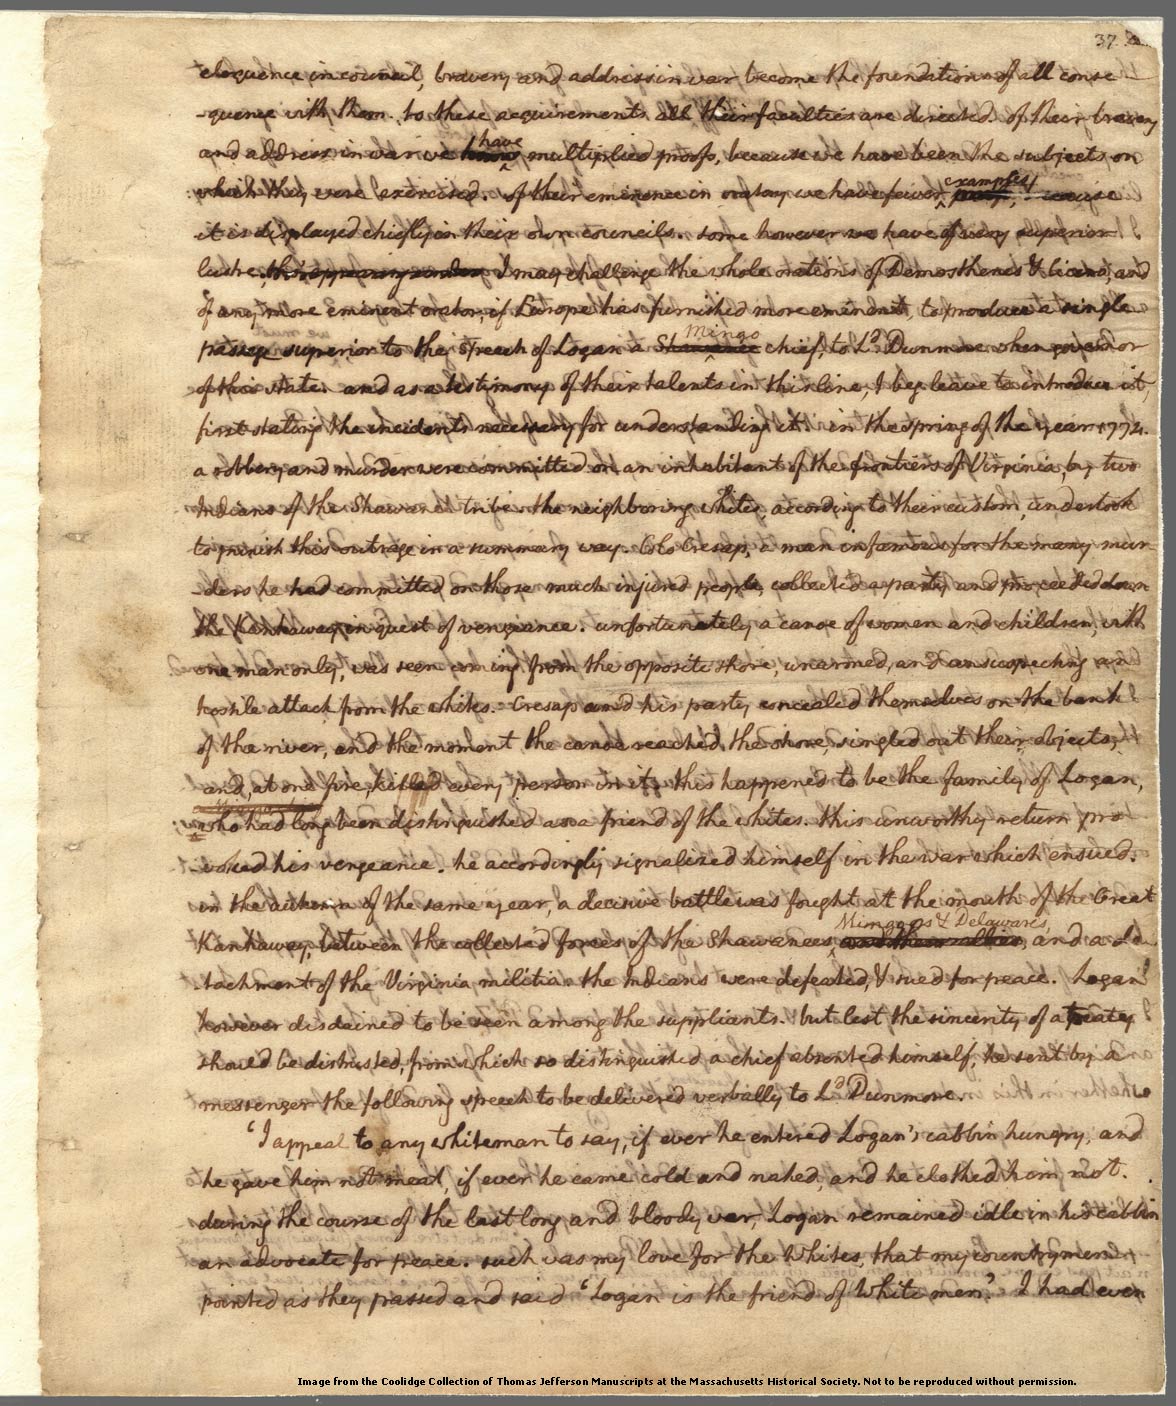 37.
eloquence in council, bravery and address in war become the foundations of all conse
-quence with them. to these acquirements all their faculties are directed. of their bravery
and address in war we have multiplied proofs, because we have been the subjects on
which they were exercised. of their eminence in oratory we have fewer examples,
it is displayed chiefly in their own councils. some however we have of very superior
lustre. I may challenge the whole orations of Demosthenes & Cicero, and
of any more eminent orator, if Europe has furnished more eminent, to produce a single
passage superior to the speech of Logan a Mingo chief, to Ld. Dunmore when governor
of this state. and as a testimony of their talents in this line, I beg leave to introduce it,
first stating the incidents necessary for understanding it. in the spring of the year 1774.
a robbery and murder were committed on an inhabitant of the frontiers of Virginia, by two
Indians of the Shawanee tribe. the neighboring whites, according to their custom, undertook
to punish this outrage in a summary way. Colo. Cresap, a man infamous for the many mur-
-ders he had committed on those much injured people, collected a party and proceeded down
the Kanhaway in quest of vengeance. unfortunately a canoe of women and children, with
one man only, was seen coming from the opposite shore, unarmed, and unsuspecting an
hostile attack from the whites. Cresap and his party concealed themselves on the bank
of the river, and the moment the canoe reached the shore, singled out their objects,
and, at one fire, killed every person in it. this happened to be the family of Logan,
who had long been distinguished as a friend of the whites. this unworthy return pro
-voked his vengeance. he accordingly signalized himself in the war which ensued.
in the autumn of the same year, a decisive battle was fought at the mouth of the Great
Kanhaway, between the collected forces of the Shawanees, Mingoes & Delawares, and a de-
-tachment of the Virginia militia. the Indians were defeated, & sued for peace. Logan
however disdained to be seen among the suppliants. but lest the sincerity of a treaty
should be distrusted, from which so distinguished a chief absented himself, he sent by a
messenger the following speech to be delivered verbally to Ld. Dunmore.
'I appeal to any white man to say, if ever he entered Logan's cabbin hungry, and
he gave him not meat, if ever he came cold and naked, and he clothed him not.
during the course of the last long and bloody war, Logan remained idle in his cabbin
an advocate for peace. such was my love for the Whites, that my countrymen
pointed as they passed and said 'Logan is the friend of White men.' I had even
Image from the Coolidge Collection of Thomas Jefferson Manuscripts at the Massachusetts Historical Society. Not to be reproduced without permission.